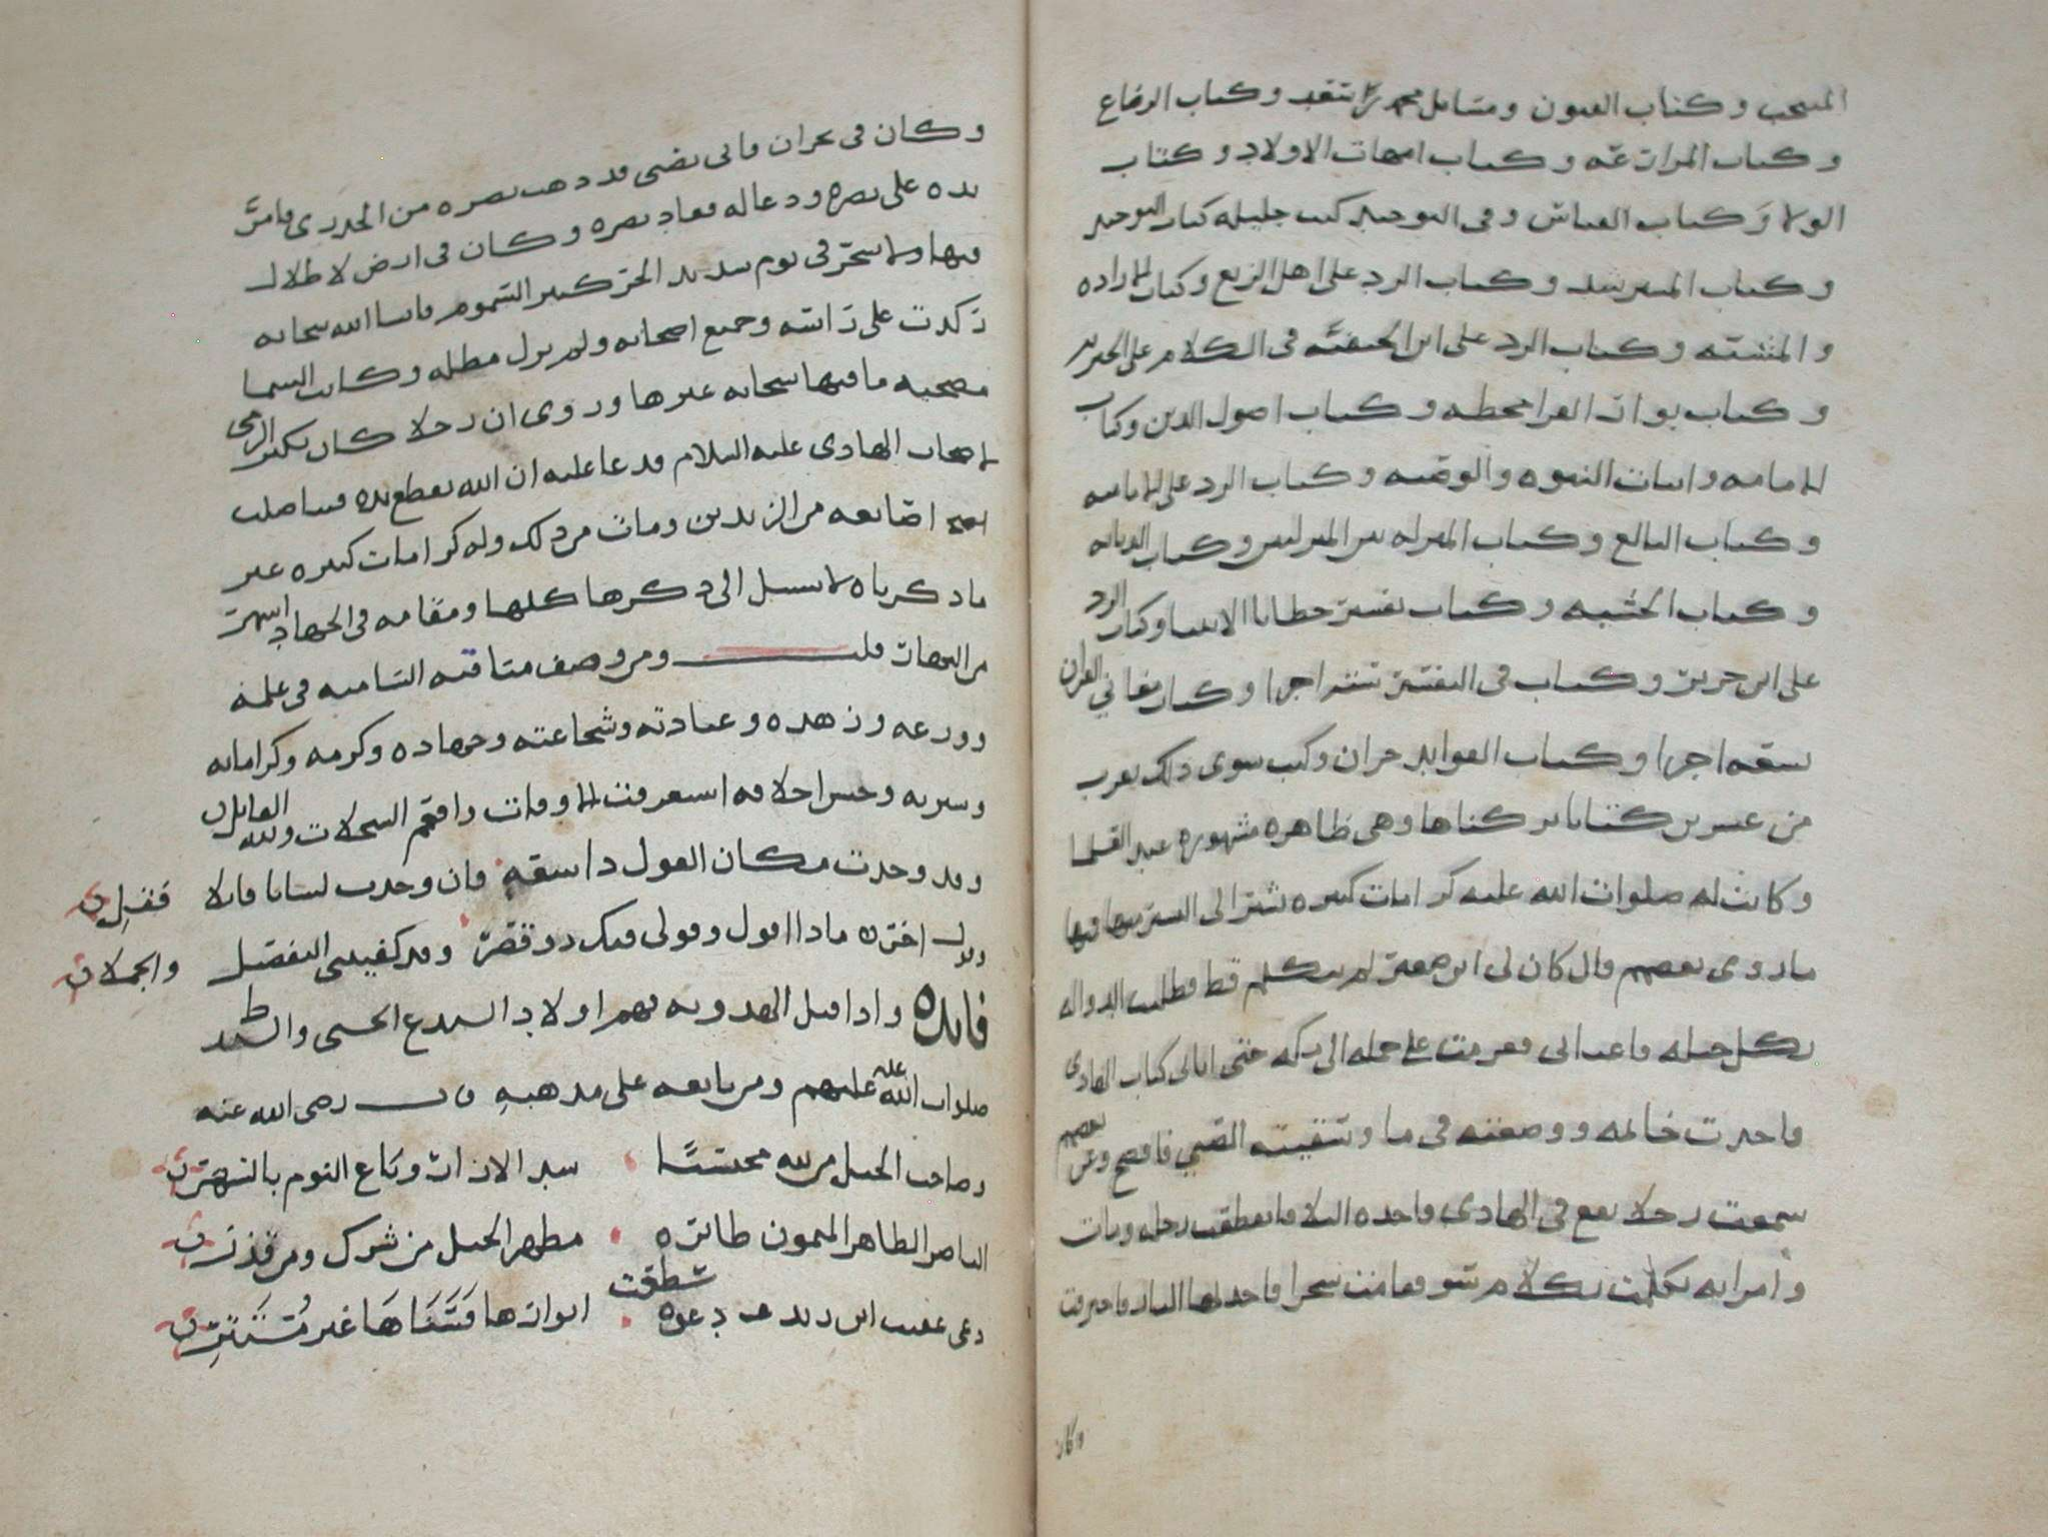 المنتخب وكتاب الفنون ومسائل محمد بن سعيد وكتاب الرضاع
وكتاب المزارعة وكتاب امهات الاولاد وكتاب
الولا وكتاب القياس وفي التوحيد كتب جليله كتاب التوحيد
وكتاب المسترشد وكتاب الرد على اهل الزيغ وكتاب الاراده
والمشيّه وكتاب الرد على ابن الحنفيّه في الكلام على الجبريه
وكتاب بوار القرامطه وكتاب اصول الدين وكتاب
الامامه واثبات النبوه والوصيه وكتاب الرد على الاماميه
وكتاب البالغ وكتاب المنزله بين المنزلتين وكتاب الديانه
وكتاب الخشيه وكتاب تفسير خطايا الانبيا وكتاب الرد
على ابن جرير وكتاب في التفسير ستة اجزا وكتاب معاني القران
تسعه اجزا وكتاب الفوايد جزان وكتب سوى ذلك تقرب
من عشرين كتابا تركناها وهي ظاهره مشهوره عند
وكانت له صلوات الله عليه كرامات كثيره نشير الى اليسير منها فيها
ما روى بعضهم قال كان لي ابن صغير لم يتكلم قط فطلبت الدوا له
بكل حيله فاعياني حتى اتاني كتاب الهادي
فاخذت خاتمه ووضعته في ما وسقيته الصبي فافصح وعن بعضهم
سمعت رجلا يقع في الهادي واحده رجله ومات
وامراه تكلمت بكلام سو فقامت سحرا فاحترقت
وكان
وكان في نجران فاتى بصبي قد ذهب بصره من الجدري فامرّ
يده على بصره ودعا له فعاد بصره وكان في ارض لا ظلال
فيها ولا شجر في يوم شديد الحر كثير السموم فانشا الله سحابه
ركدت على راسه وجميع اصحابه ولم يزل مظله وكانت السما
مصحيه ما فيها سحابه غيرها وروى ان رجلا كان يكثر الرمي
لاصحاب الهادي عليه السلام فدعا عليه ان الله يقطع يده
اصابعه من الزندين ومات من ذلك وله كرامات كثيره غير
ما ذكرناه لا سبيل الى ذكرها كلها ومقامه في الجهاد اشهر
من النهار قلت ومن وصف مناقبه الساميه في علمه
وورعه وزهده وعبادته وشجاعته وجهاده وكرمه وكراماته
وسيرته وحسن اخلاقه استغرقت الاوقات وافعم السجلات ولله القايل
وقد وجدت مكان القول ذا سعه فان وجدت لسانا قايلا فقل
ماذا اقول وقولي فيك ذو قصر وقد كفيتني التفصيل والجملا
فايده واذا قيل الهدويه فهم اولاد
صلوات الله عليهم ومن تابعه على مذهبه رضي الله عنه
وصاحب الجيل من لله محتسبا سبر الاذان وباع النوم بالسهر
الناصر الطاهر الميمون طايره مطهر الجيل من شرك ومن قذر
دعوه